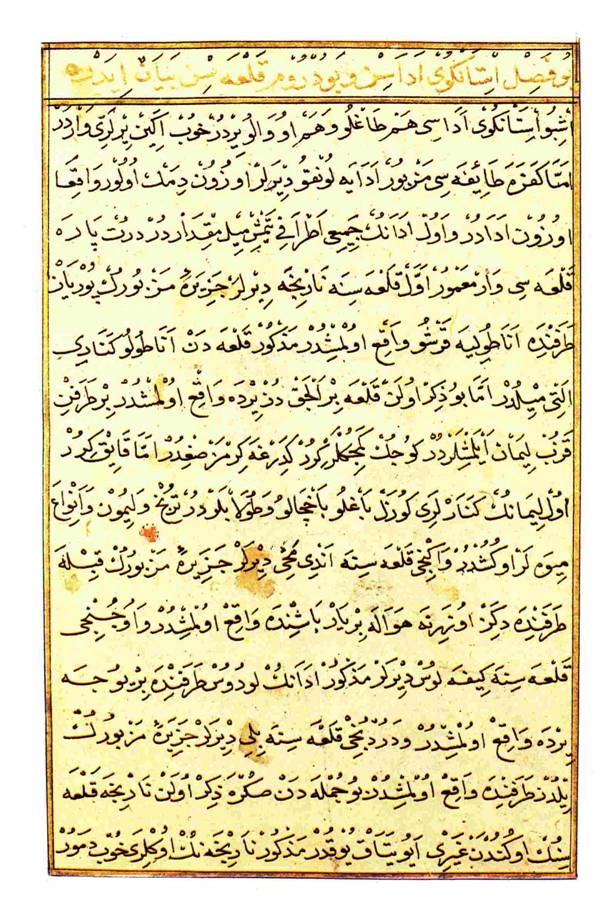 بو فصل استانكوى اداسن و بودروم قلعه سن بيان ايدر
اشبو استانكوى اداسى هم طاغلو و هم اووالو يردر خوب اكين يرلرى واردر
امّا كفره طائفه سى مزبور ادايه لونغو ديرلر اوزون ديمك اولور واقعا
اوزون ادادر و اول ادانك جميع اطرافى يتمش ميل مقداردر درت پاره
قلعه سى وار معمور اوّل قلعه سنه نارنجه ديرلر جزيرهٔ مزبورك پوريان
طرفنده اناطوليه قرشو واقع اولمشدر مذكور قلعه دن اناطولو كنارى
التى ميلدر امّا بو ذكر اولن قلعه بر الجق دز يرده واقع اولمشدر بر طرفن
قزب ليمان ايلمشلردر كوجك كميلر كرر كدرغه كرمز صغدر امّا قايق كرر
اول ليمانك كنارلرى كوزل باغلو باغچالو و طولابلودر ترنج و ليمون و انواع
ميوه لر اوكشدر و ايكنجى قلعه سنه اندى مخى ديرلر جزيرهٔ مزبورك قبله
طرفنده دكز اوزرنه هواله بر يار باشنده واقع اولمشدر و اوچنجى
قلعه سنه كيفه لوس ديرلر مذكور ادانك لودوس طرفنده بر يوجه
يرده واقع اولمشدر و دردنجى قلعه سنه پلى ديرلر جزيرهٔ مزبورك
يلدز طرفنده واقع اولمشدر بو جمله دن صكره ذكر اولن نارنجه قلعه
سنك اوكندن غيرى ايو يتاق يوقدر مذكور نارنجه نك اوكلرى خوب دمور